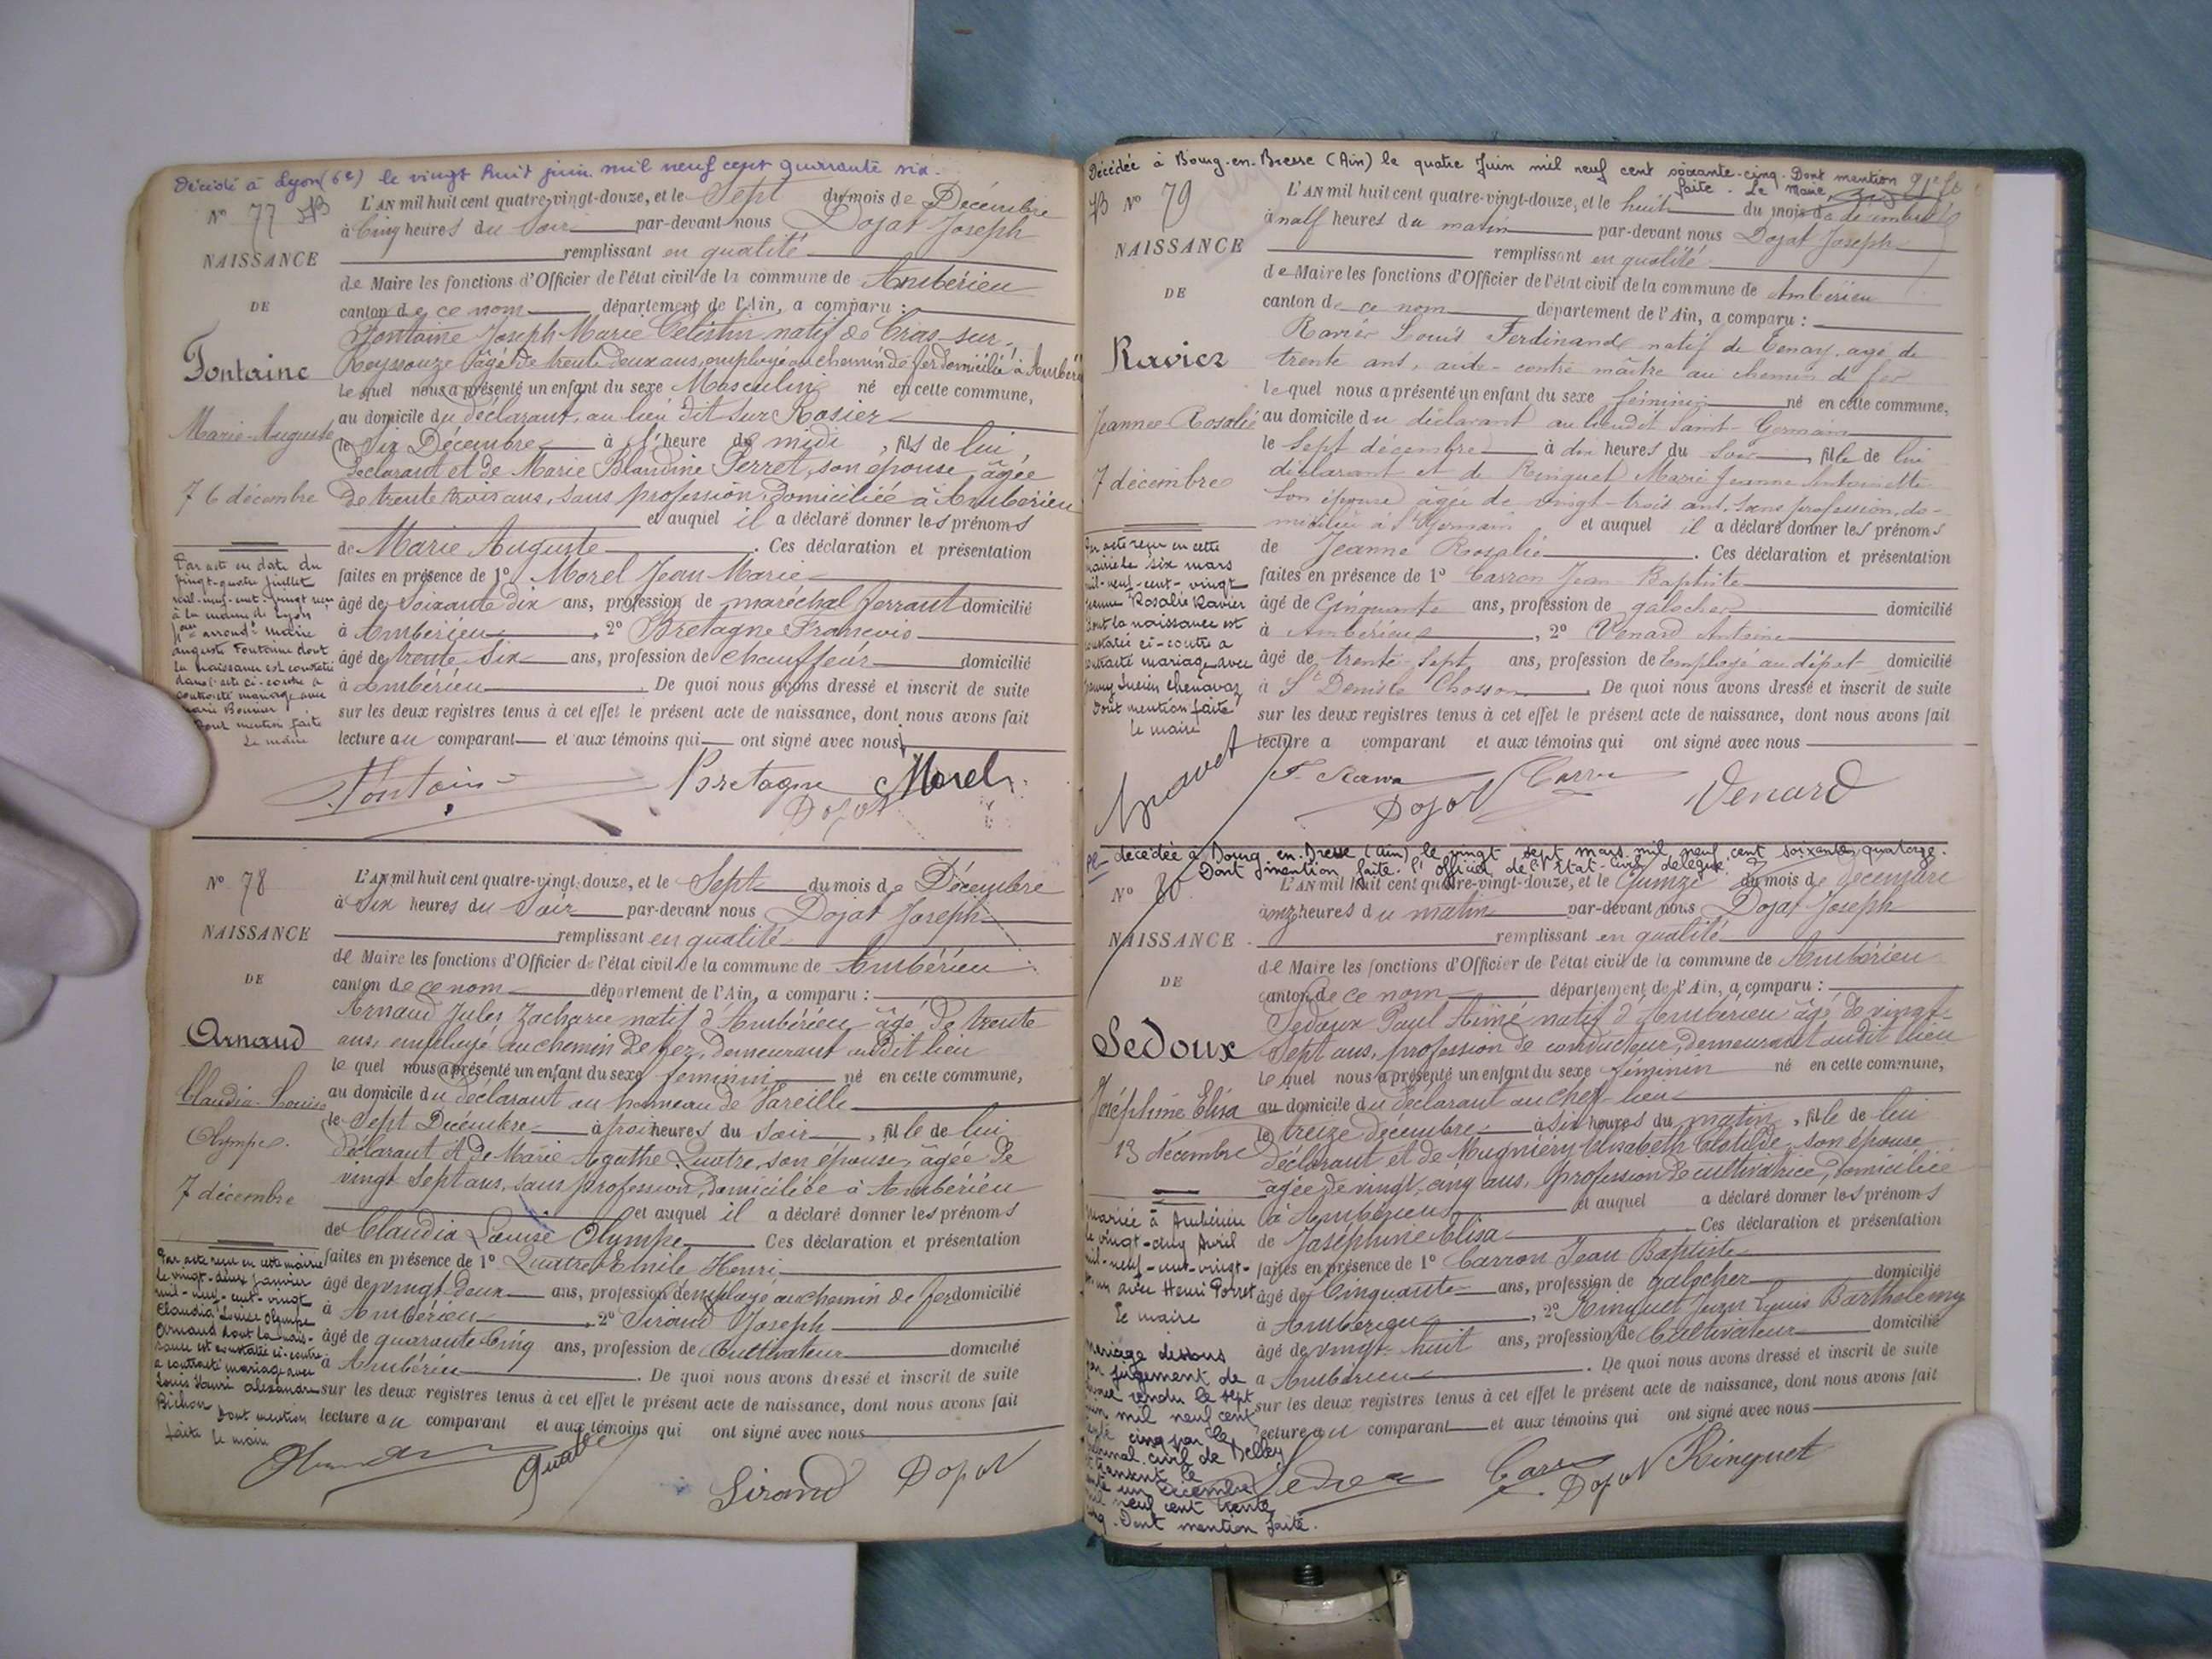 Décédé à Lyon (6e) le vingt huit juin mil neuf cent quarante six.
N° 77
L'AN mil huit cent quatre-vingt-douze, et le Sept du mois de Décembre
à Cinq heures du Soir par-devant nous Dojat Joseph
NAISSANCE
remplissant en qualité
de Maire les fonctions d'Officier de l'état civil de la commune de Ambérieu
DE
canton de ce nom département de l'Ain, a comparu :
Fontaine Joseph-Marie Célestin natif de Cras-sur-
Fontaine
Reyssouze âgé de trente deux ans, employé au chemin de fer domicilié à Ambérieu
le quel nous a présenté un enfant du sexe Masculin né en cette commune,
au domicile du déclarant, au lieu dit sur Rosier
Marie-Auguste
le Six Décembre à l'heure de midi, fils de lui
déclarant et de Marie Blandine Perret, son épouse, âgée
7 6 décembre
de trente trois ans, sans profession, domiciliée à Ambérieu
et auquel il a déclaré donner les prénoms
de Marie Auguste. Ces déclaration et présentation
faites en présence de 1° Morel Jean-Marie
âgé de Soixante dix ans, profession de maréchal ferrant domicilié
à Ambérieu, 2° Bretagne François
âgé de trente Six ans, profession de Chauffeur domicilié
à Ambérieu. De quoi nous avons dressé et inscrit de suite
sur les deux registres tenus à cet effet le présent acte de naissance, dont nous avons fait
lecture au comparant et aux témoins qui ont signé avec nous
Par acte en date du
vingt-quatre juillet
mil-neuf-cent-vingt
à la mairie de Lyon
auguste Fontaine dont
la naissance est constatée
dans l'acte ci-contre a
contracté mariage avec
Marie Bonnier
Dont mention faite
Le maire
Fontaine Bretagne Morel
Dojat
N° 78
L'AN mil huit cent quatre-vingt-douze, et le Sept du mois de Décembre
à Six heures du Soir par-devant nous Dojat Joseph
NAISSANCE
remplissant en qualité
de Maire les fonctions d'Officier de l'état civil de la commune de Ambérieu
DE
canton de ce nom département de l'Ain, a comparu :
Arnaud Jules Zacharie natif d'Ambérieu âgé de trente
Arnaud
ans, employé au chemin de fer, demeurant audit lieu
le quel nous a présenté un enfant du sexe féminin né en cette commune,
Claudia-Louise
au domicile du déclarant au hameau de Vareille
le Sept Décembre à trois heures du Soir, fille de lui
Olympe.
déclarant et de Marie Agathe Quatre, son épouse, âgée de
7 décembre
vingt Sept ans, sans profession, domiciliée à Ambérieu
et auquel il a déclaré donner les prénoms
de Claudia Louise Olympe Ces déclaration et présentation
faites en présence de 1° Quatre Emile Henri
âgé de vingt deux ans, profession de employé au chemin de fer domicilié
à Ambérieu, 2° Siraud Joseph
âgé de quarante Cinq ans, profession de Cultivateur domicilié
à Ambérieu. De quoi nous avons dressé et inscrit de suite
sur les deux registres tenus à cet effet le présent acte de naissance, dont nous avons fait
lecture au comparant et aux témoins qui ont signé avec nous
Par acte reçu en cette mairie
le vingt-deux janvier
mil-neuf-cent-vingt
Claudia Louise Olympe
Arnaud dont la nais-
sance est constatée ci-contre
a contracté mariage avec
Louis Henri alexandre
Bichon
Dont mention
faite le maire
Quatre Siraud Dojat
Décédée à Bourg-en-Bresse (Ain) le quatre Juin mil neuf cent soixante-cinq. Dont mention
faite. Le Maire
N° 79
L'AN mil huit cent quatre-vingt-douze, et le huit du mois de décembre
à neuf heures du matin par-devant nous Dojat Joseph
NAISSANCE
remplissant en qualité
de Maire les fonctions d'Officier de l'état civil de la commune de Ambérieu
DE
canton de ce nom département de l'Ain, a comparu :
Ravier Louis Ferdinand natif de Tenay, âgé de
Ravier
trente ans, aide-contre maître au chemin de fer
le quel nous a présenté un enfant du sexe féminin né en cette commune,
Jeanne Rosalie
au domicile du déclarant au lieudit Saint-Germain
le Sept décembre à dix heures du Soir, fille de lui
déclarant et de Ringuet Marie Jeanne Antoinette
7 décembre
son épouse âgée de vingt-trois ans, sans profession, do-
miciliée à St Germain et auquel il a déclaré donner les prénoms
de Jeanne Rosalie. Ces déclaration et présentation
faites en présence de 1° Carron Jean Baptiste
âgé de Cinquante ans, profession de galocher domicilié
à Ambérieu, 2° Venard Antoine
âgé de trente-Sept ans, profession de Employé au dépôt domicilié
à St Denis le Chosson. De quoi nous avons dressé et inscrit de suite
sur les deux registres tenus à cet effet le présent acte de naissance, dont nous avons fait
lecture a comparant et aux témoins qui ont signé avec nous
Par acte reçu en cette
mairie le six mars
mil-neuf-cent-vingt
Jeanne Rosalie Ravier
dont la naissance est
constatée ci-contre a
contracté mariage avec
Lucien Chenavaz
Dont mention faite
le maire
Dojat Venard
décédée à Bourg-en-Bresse (Ain) le vingt sept mars mil neuf cent soixante quatorze.
Dont mention faite. l'officier de l'Etat-Civil délégué.
N° 80
L'AN mil huit cent quatre-vingt-douze, et le Quinze du mois de décembre
à onze heures du matin par-devant nous Dojat Joseph
NAISSANCE
remplissant en qualité
de Maire les fonctions d'Officier de l'état civil de la commune de Ambérieu
DE
canton de ce nom département de l'Ain, a comparu :
Sedoux Paul Aimé natif d'Ambérieu âgé de vingt-
Sedoux
Sept ans, profession de conducteur, demeurant audit lieu
le quel nous a présenté un enfant du sexe féminin né en cette commune,
Joséphine Elisa
au domicile du déclarant au chef-lieu
le treize décembre à Six heures du matin, fille de lui
13 décembre
déclarant et de Mugniéry Elisabeth Clotilde, son épouse
âgée de vingt-cinq ans, profession de cultivatrice, domiciliée
à Ambérieu et auquel a déclaré donner les prénoms
de Joséphine Elisa Ces déclaration et présentation
faites en présence de 1° Carron Jean Baptiste
âgé de Cinquante ans, profession de galocher domicilié
à Ambérieu, 2° Ringuet Jean Louis Barthelemy
âgé de vingt-huit ans, profession de Cultivateur domicilié
à Ambérieu. De quoi nous avons dressé et inscrit de suite
sur les deux registres tenus à cet effet le présent acte de naissance, dont nous avons fait
lecture au comparant et aux témoins qui ont signé avec nous
Mariée à Ambérieu
le vingt-cinq Avril
mil-neuf-cent-vingt-
avec Henri Porret
Le maire
mariage dissous
par jugement de
divorce rendu le sept
juin mil neuf cent
trente cinq par le
tribunal civil de Belley
transcrit le
trente un décembre
mil neuf cent trente
cinq. Dont mention faite.
Dojat Ringuet